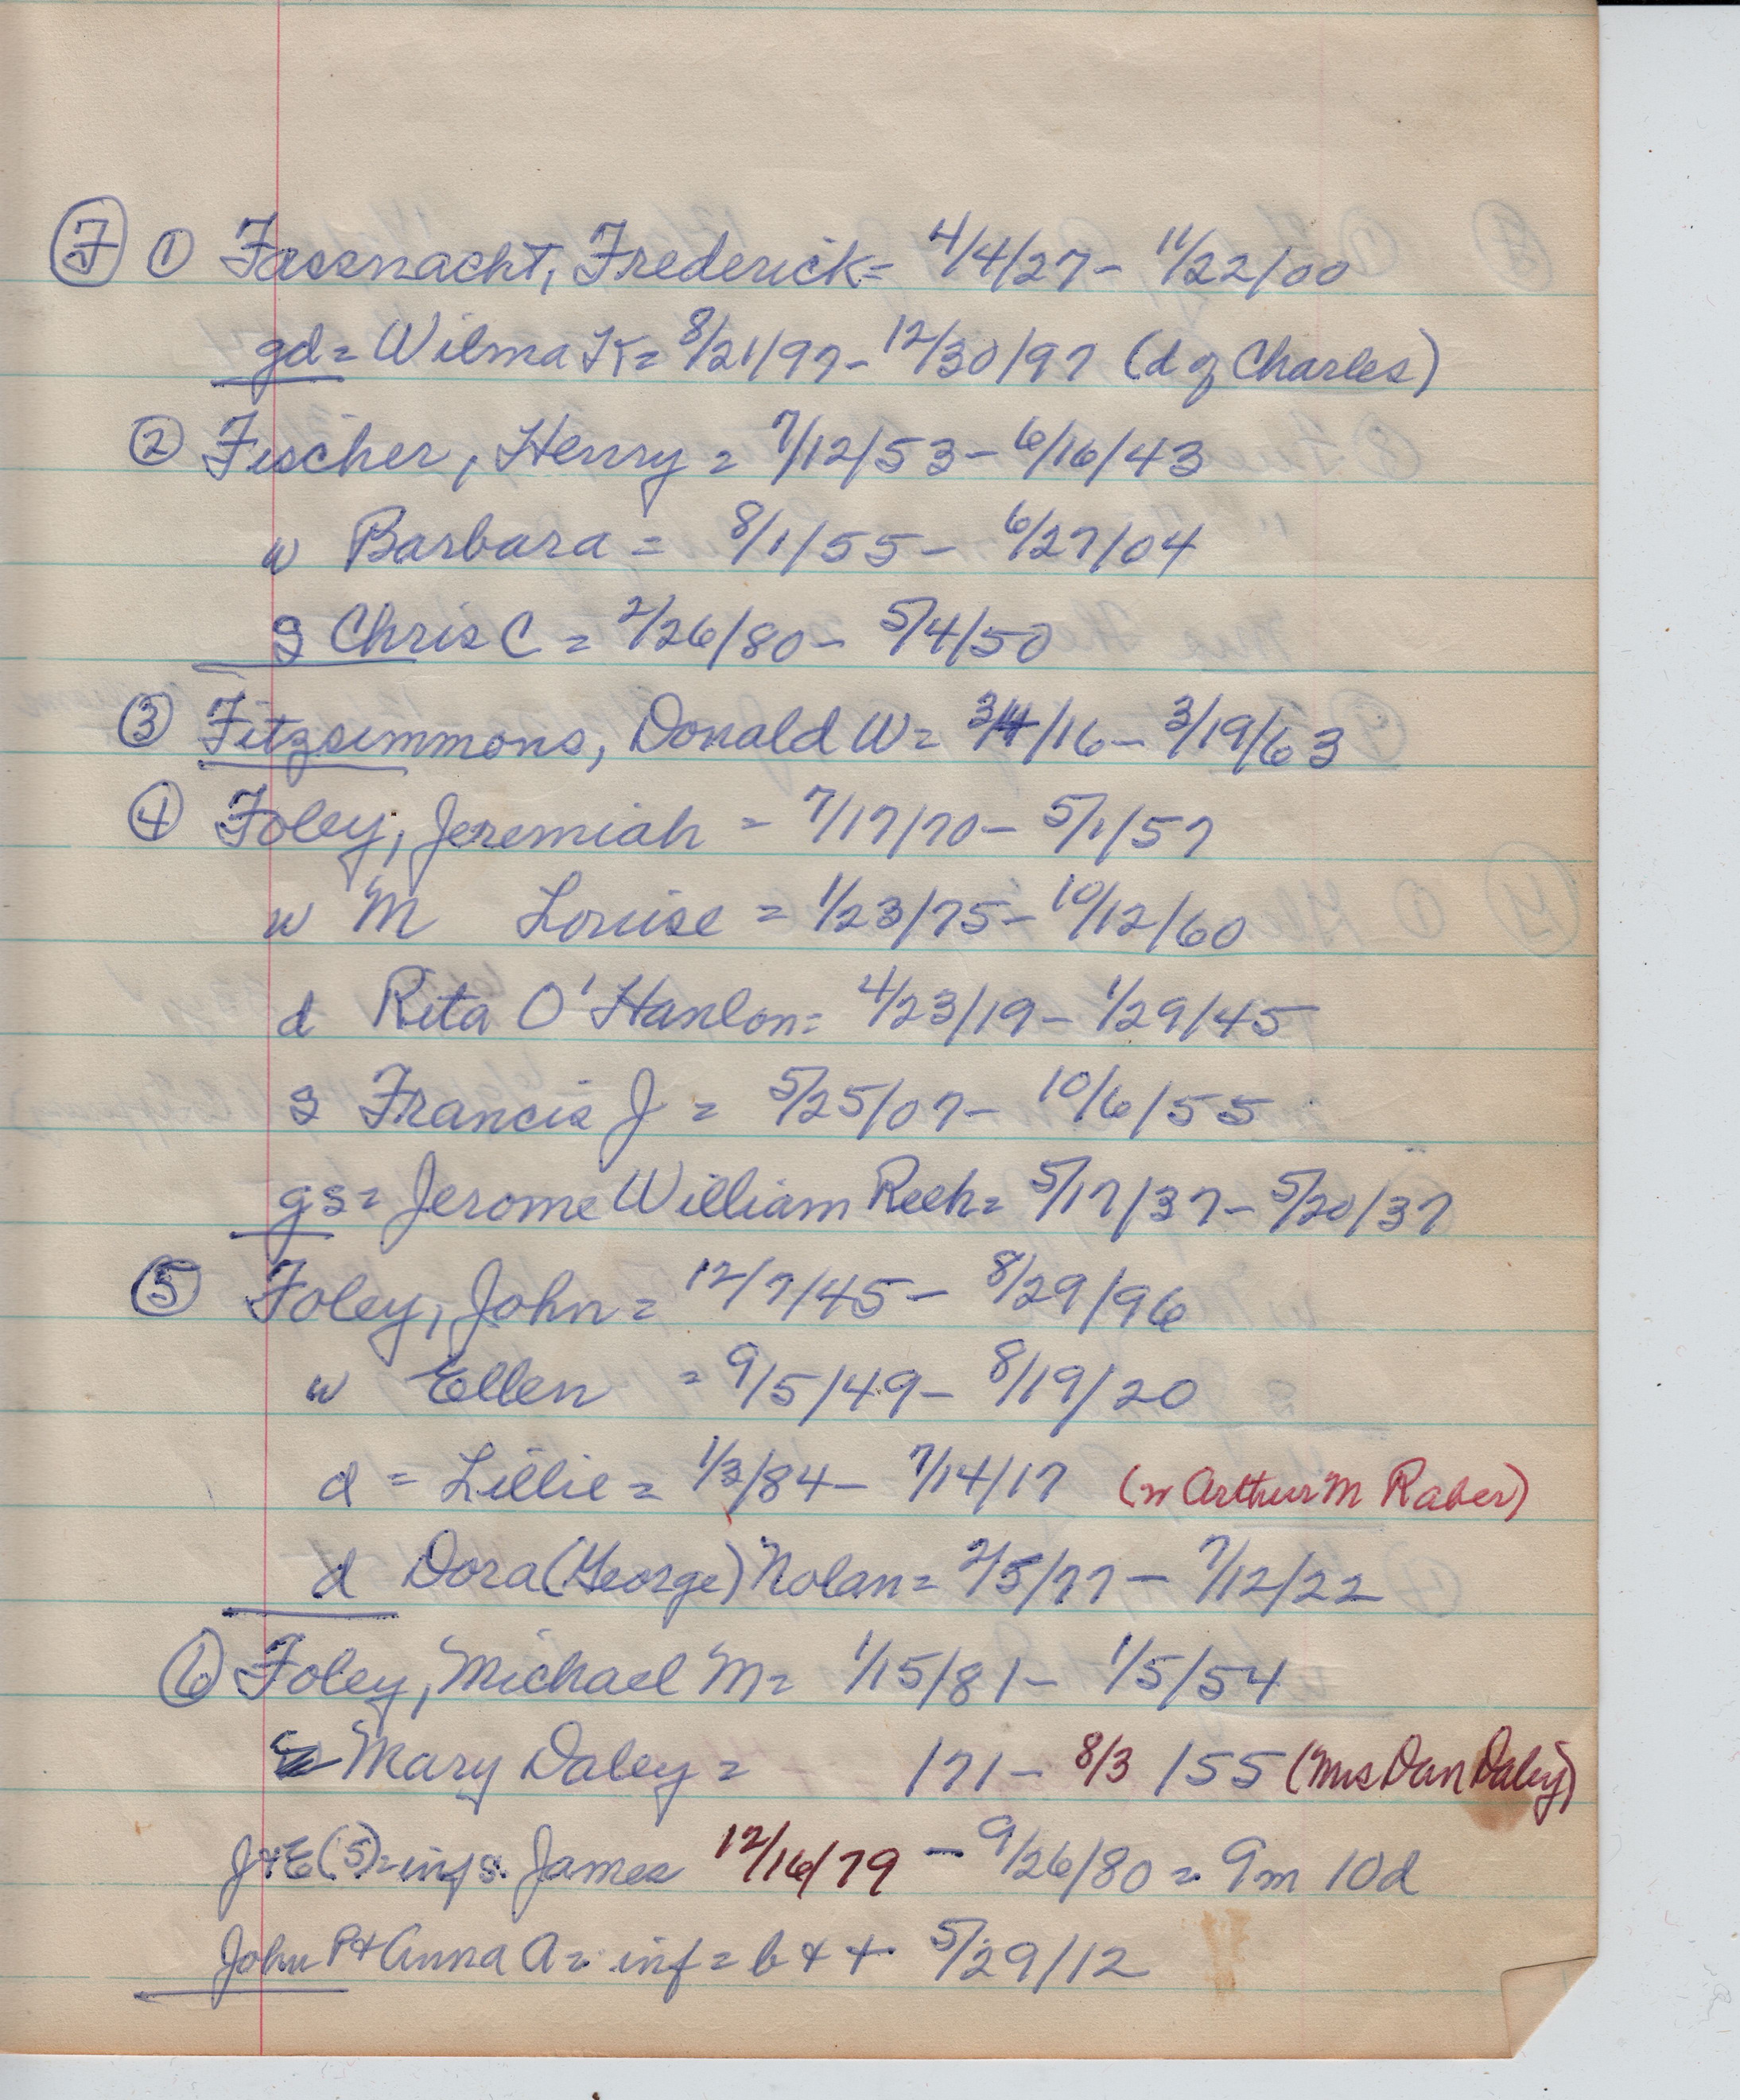 F ① Fassnacht, Frederick = 4/4/27 - 11/22/00
gd = Wilma K = 8/21/97 - 12/30/97 (d of Charles)
② Fischer, Henry = 7/12/53 - 6/16/43
w Barbara = 8/1/55 - 6/27/04
s Chris C = 2/26/80 - 5/4/50
③ Fitzsimmons, Donald W = 3/4/16 - 3/19/63
④ Foley, Jeremiah = 7/17/70 - 5/1/57
w M Louise = 1/23/75 - 10/12/60
d Rita O'Hanlon = 4/23/19 - 1/29/45
s Francis J = 5/25/07 - 10/6/55
gs = Jerome William Reeh = 5/17/37 - 5/20/37
⑤ Foley, John = 12/7/45 - 8/29/96
w Ellen = 9/5/49 - 8/19/20
d = Lillie = 1/3/84 - 7/14/17 (w Arthur M Raber)
d Dora (George) Nolan = 2/5/77 - 7/12/22
⑥ Foley, Michael M = 1/15/81 - 1/5/54
Mary Daley = /71 - 8/3/55 (Mrs Dan Daley)
J+E (5) = inf s. James 12/16/79 - 9/26/80 = 9m 10d
John P + Anna A = inf = b + + 5/29/12